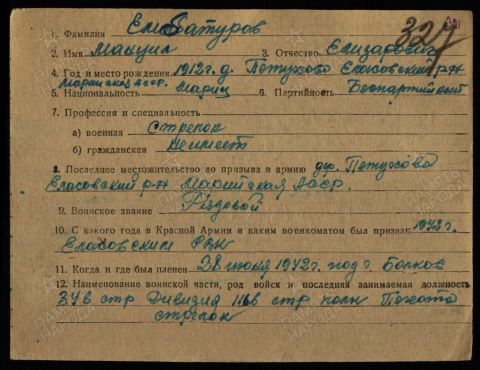 327
1. Фамилия Ембатуров
2. Имя Манции 3. Отчество Елизарович
4. Год и место рождения 1912 г. д. Петухово Еласовский р-н
Марийской АССР.
5. Национальность Мариц 6. Партийность Беспартийный
7. Профессия и специальность
а) военная стрелок
б) гражданская не имеет
8. Последнее местожительство до призыва в армию дер. Петухова
Еласовский р-н Марийская АССР.
9. Воинское звание Рядовой
10. С какого года в Красной Армии и каким военкоматом был призван 1942 г.
Еласовским РВК
11. Когда и где был пленен 28 июня 1942 г. под г.
12. Наименование воинской части, род войск и последняя занимаемая должность
стр Дивизия стр полк Пехота
стрелок